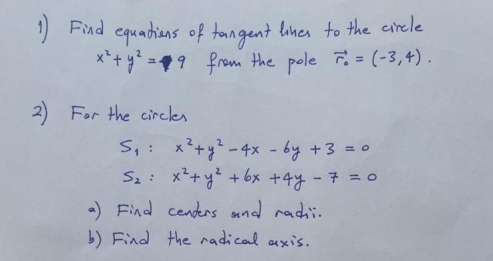 1) Find equations of tangent lines to the circle
x² + y² = 9 from the pole r⃗₀ = (-3, 4).
2) For the circles
S₁ : x² + y² - 4x - 6y + 3 = 0
S₂ : x² + y² + 6x + 4y - 7 = 0
a) Find centers and radii.
b) Find the radical axis.